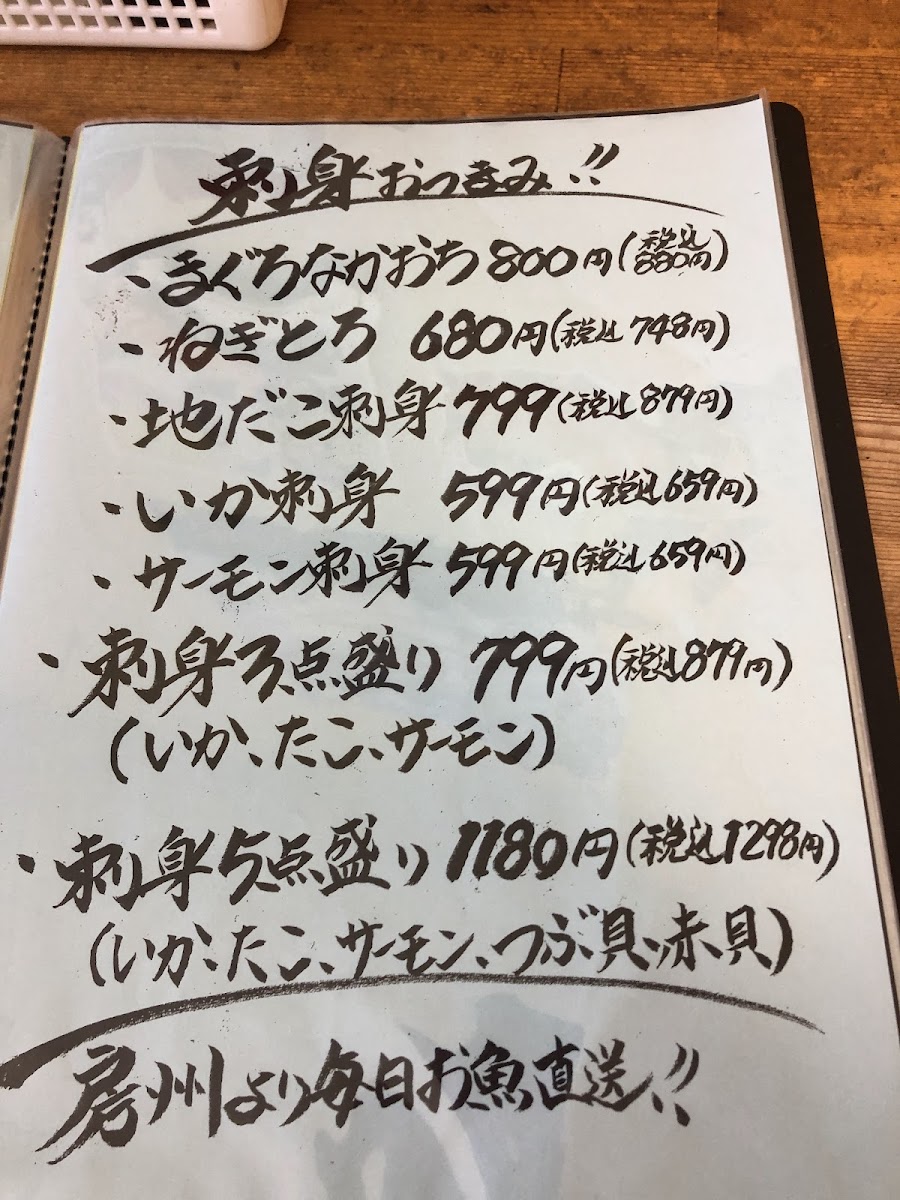 刺身おつまみ!!
・まぐろなかおち 800円(税込880円)
・ねぎとろ 680円(税込748円)
・地だこ刺身 799(税込879円)
・いか刺身 599円(税込659円)
・サーモン刺身 599円(税込659円)
・刺身3点盛り 799円(税込879円)
(いか、たこ、サーモン)
・刺身5点盛り 1180円(税込1298円)
(いか、たこ、サーモン、つぶ貝、赤貝)
房州より毎日お魚直送!!